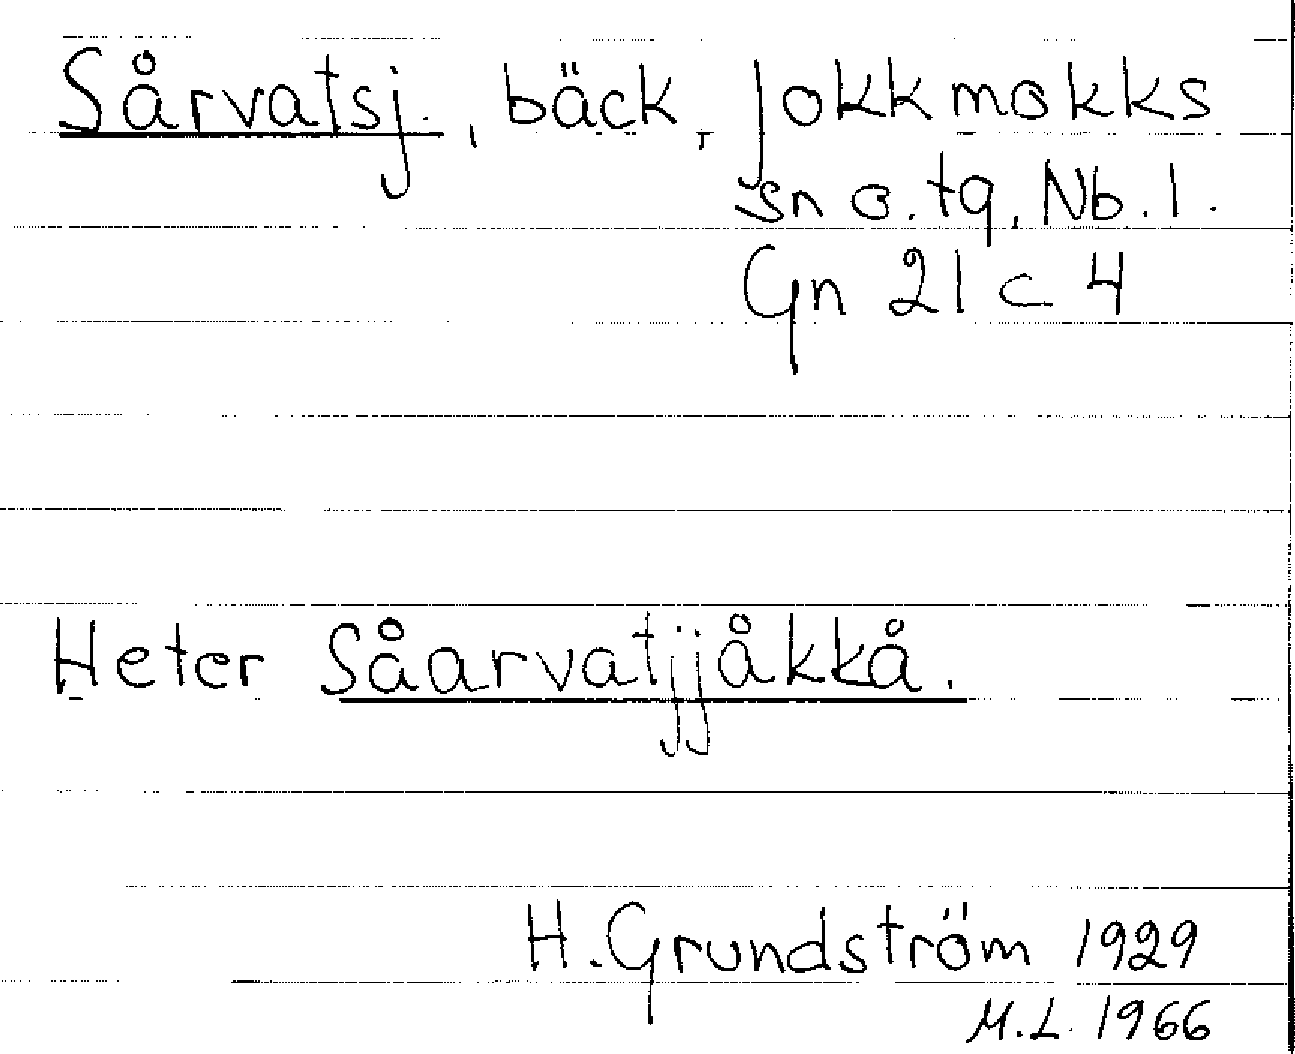 Sårvatsj., bäck, Jokkmokks
sn o. tg, Nb. l.
Gn 21 c 4
Heter Såarvatjjåkkå.
H. Grundström 1929
M.L. 1966